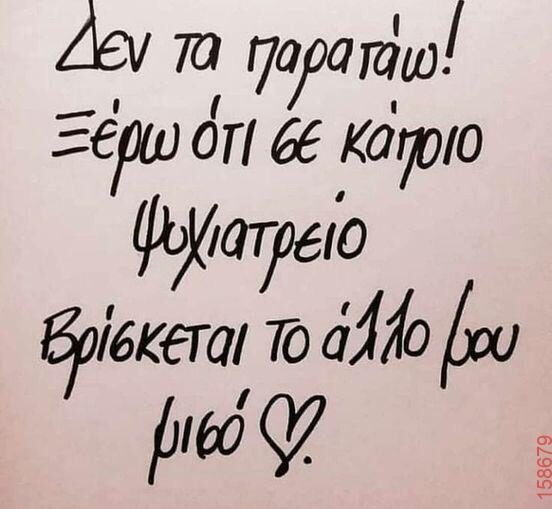 Δεν τα παρατάω!
Ξέρω ότι σε κάποιο
ψυχιατρείο
Βρίσκεται το άλλο μου
μισό ♡.
158679